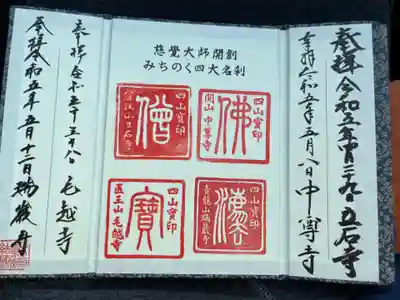 奉拝 令和五年四月二九日 立石寺
奉拝 令和五年五月八日 中尊寺
慈覺大師開創
みちのく四大名刹
四山寶印
佛
関山 中尊寺
僧
山立石寺
四山寶印
青龍山瑞巖寺
四山寶印
寶
医王山毛越寺
奉拝 令和五年五月八日 毛越寺
奉拝 令和五年五月十二日 瑞巌寺